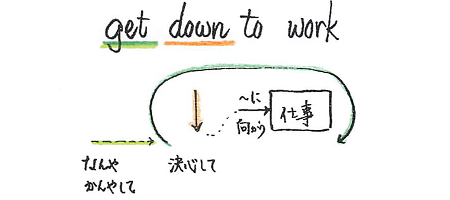 get down to work
〜に
向かう
仕事
なんや
かんやして
決心して